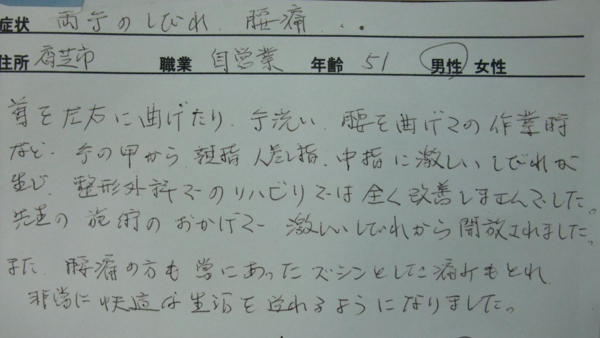 症状 両手のしびれ 腰痛 ・・
住所 香芝市 職業 自営業 年齢 51 男性 女性
首を左右に曲げたり、手洗い、腰を曲げての作業時
など、手の甲から親指、人差し指、中指に激しいしびれが
生じ、整形外科でのリハビリでは全く改善しませんでした。
先生の施術のおかげで激しいしびれから開放されました。
また、腰痛の方も常にあったズシンとした痛みもとれ、
非常に快適な生活を送れるようになりました。